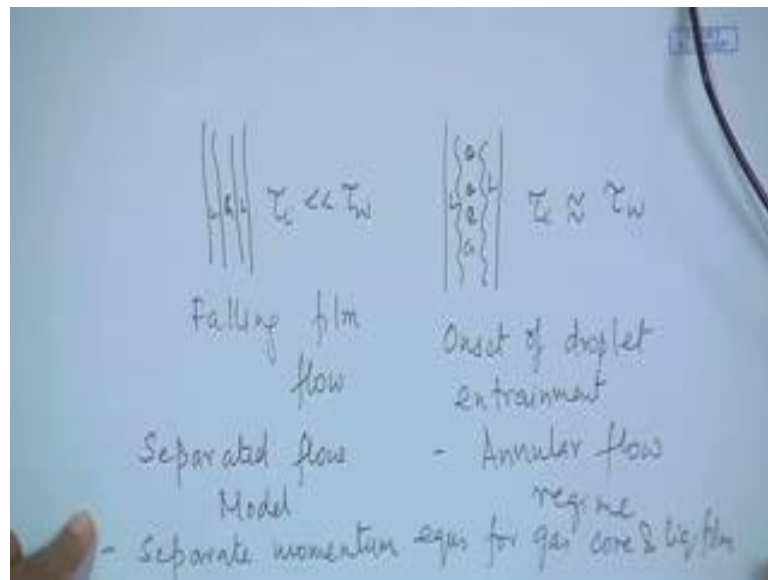 τi << τw
τi ≈ τw
Falling film
flow
Onset of droplet
entrainment
Separated flow
Model
- Annular flow
regime
- Separate momentum eqns for gas core & liq film